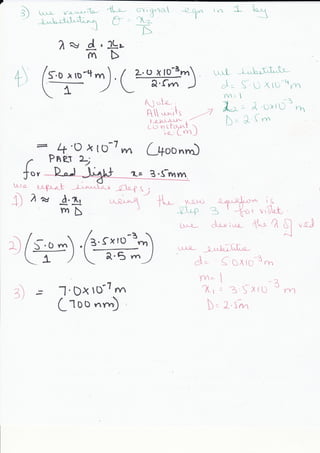 3) we rewrite the original eqn in 1 by
substituting θ = x₂/D
λ ≈ d/m · x₂/D
4) (5.0 x10⁻⁴m / 1) · (2.0 x10⁻³m / 2.5m)
we substitute
d = 5.0 x10⁻⁴m
m = 1
x₂ = 2.0x10⁻³m
D = 2.5m
Note
All units
remain
constant
ie (m)
= 4.0 x10⁻⁷m (400nm)
PART 2;
for Red light x= 3.5mm
we repeat similar steps;
1) λ ≈ d·x₁ / m D using the new equation is
step 3 for violet
we derive the λ of red
2) (5.0m / 1) · (3.5x10⁻³m / 2.5m)
we substitute
d= 5.0x10⁻³m
m= 1
x₁ = 3.5x10⁻³m
D= 2.5m
3) = 7.0x10⁻⁷m
(700nm)